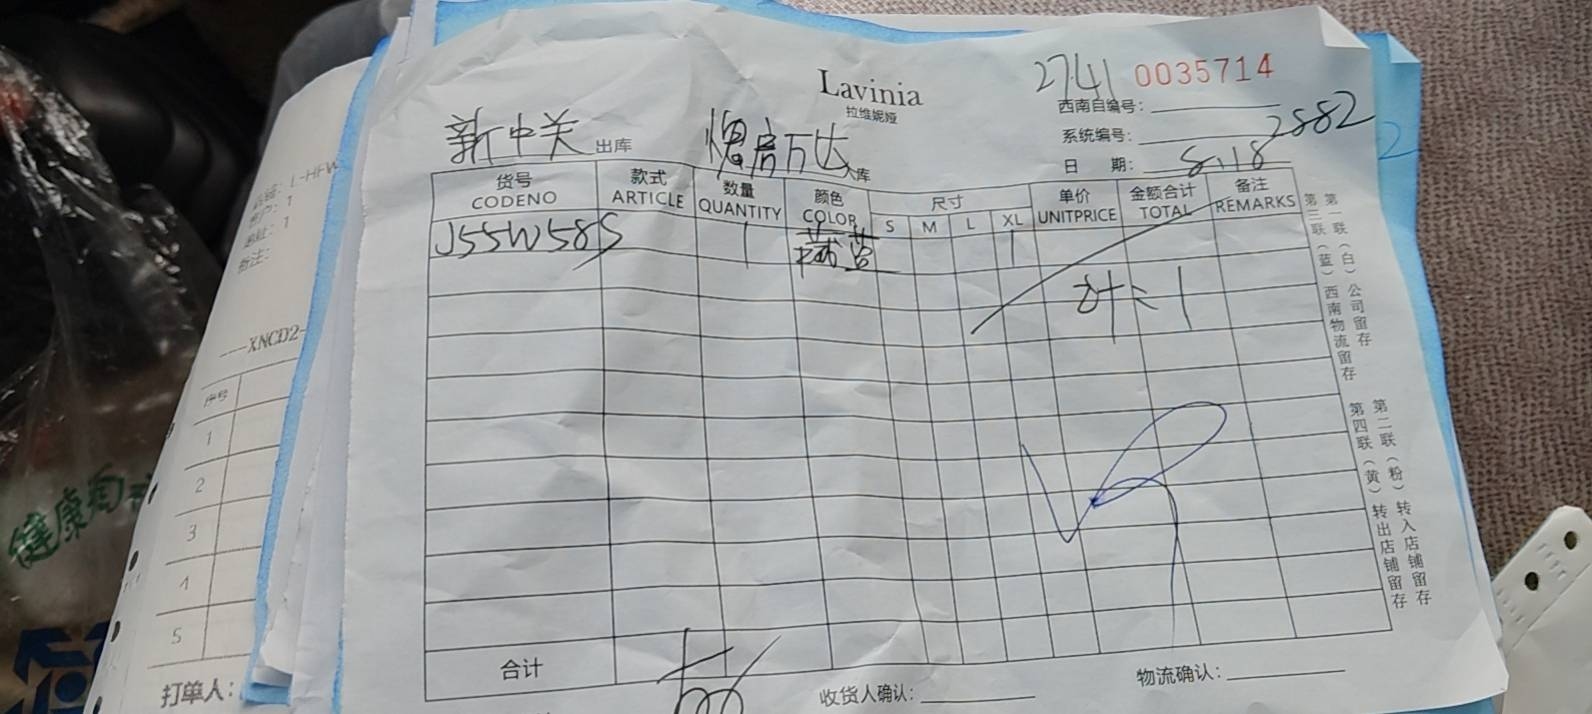 Lavinia
拉维妮娅
2741 0035714
西南自编号：
系统编号： 2882
日 期： 8.18
新中关 出库
万达 库
货号 款式 数量 颜色 尺寸 单价 金额合计 备注
CODENO ARTICLE QUANTITY COLOR S M L XL UNITPRICE TOTAL REMARKS
J55W58S 1 藏蓝 1
计：1
合计
收货人确认：
物流确认：
第一联（白）公司留存
第三联（蓝）西南物流留存
第二联（粉）转入店铺留存
第四联（黄）转出店铺留存
L-HFW
1
1
备注：
---XNCD2-
序号
1
2
3
4
5
打单人：
健康